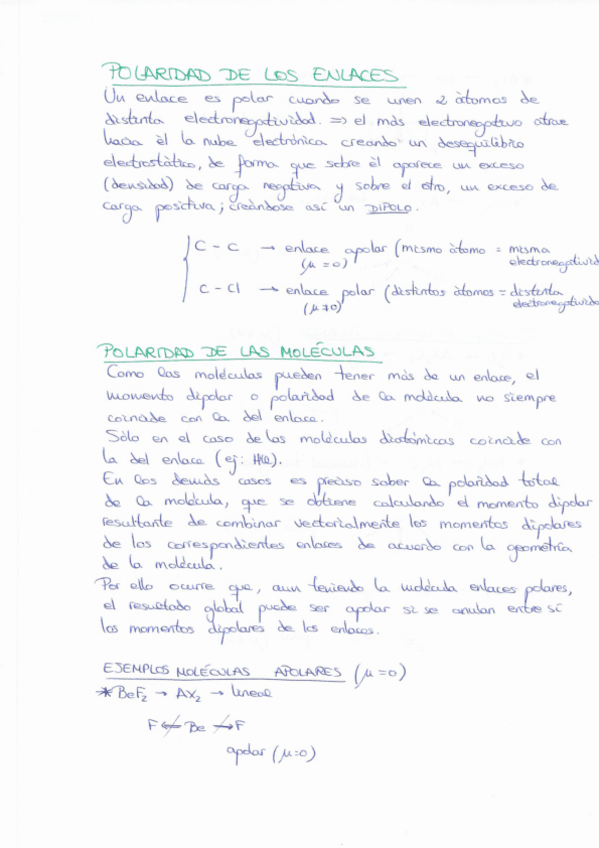 POLARIDAD DE LOS ENLACES
Un enlace es polar cuando se unen 2 àtomos de
distinta electronegatividad. => el más electronegativo atrae
hacia èl la nube electrònica creando un desequilibrio
electrostàtico, de forma que sobre èl aparece un exceso
(densidad) de carga negativa y sobre el otro, un exceso de
carga positiva; creàndose así un DIPOLO.
C - C → enlace apolar (mismo àtomo = misma
(μ = 0) electronegativid
C - Cl → enlace polar (distintos àtomos = distinta
(μ ≠ 0) electronegativid
POLARIDAD DE LAS MOLÉCULAS
Como las moléculas pueden tener más de un enlace, el
momento dipolar o polaridad de la molécula no siempre
coincide con la del enlace.
Sòlo en el caso de las moléculas diatómicas coincide con
la del enlace (ej: HCl).
En los demás casos es preciso saber la polaridad total
de la molécula, que se obtiene calculando el momento dipolar
resultante de combinar vectorialmente los momentos dipolares
de los correspondientes enlaces de acuerdo con la geometría
de la molécula.
Por ello ocurre que, aun teniendo la molécula enlaces polares,
el resultado global puede ser apolar si se anulan entre sí
los momentos dipolares de los enlaces.
EJEMPLOS MOLÉCULAS APOLARES (μ = 0)
* BeF₂ → AX₂ → lineal
F ← Be → F
apolar (μ = 0)